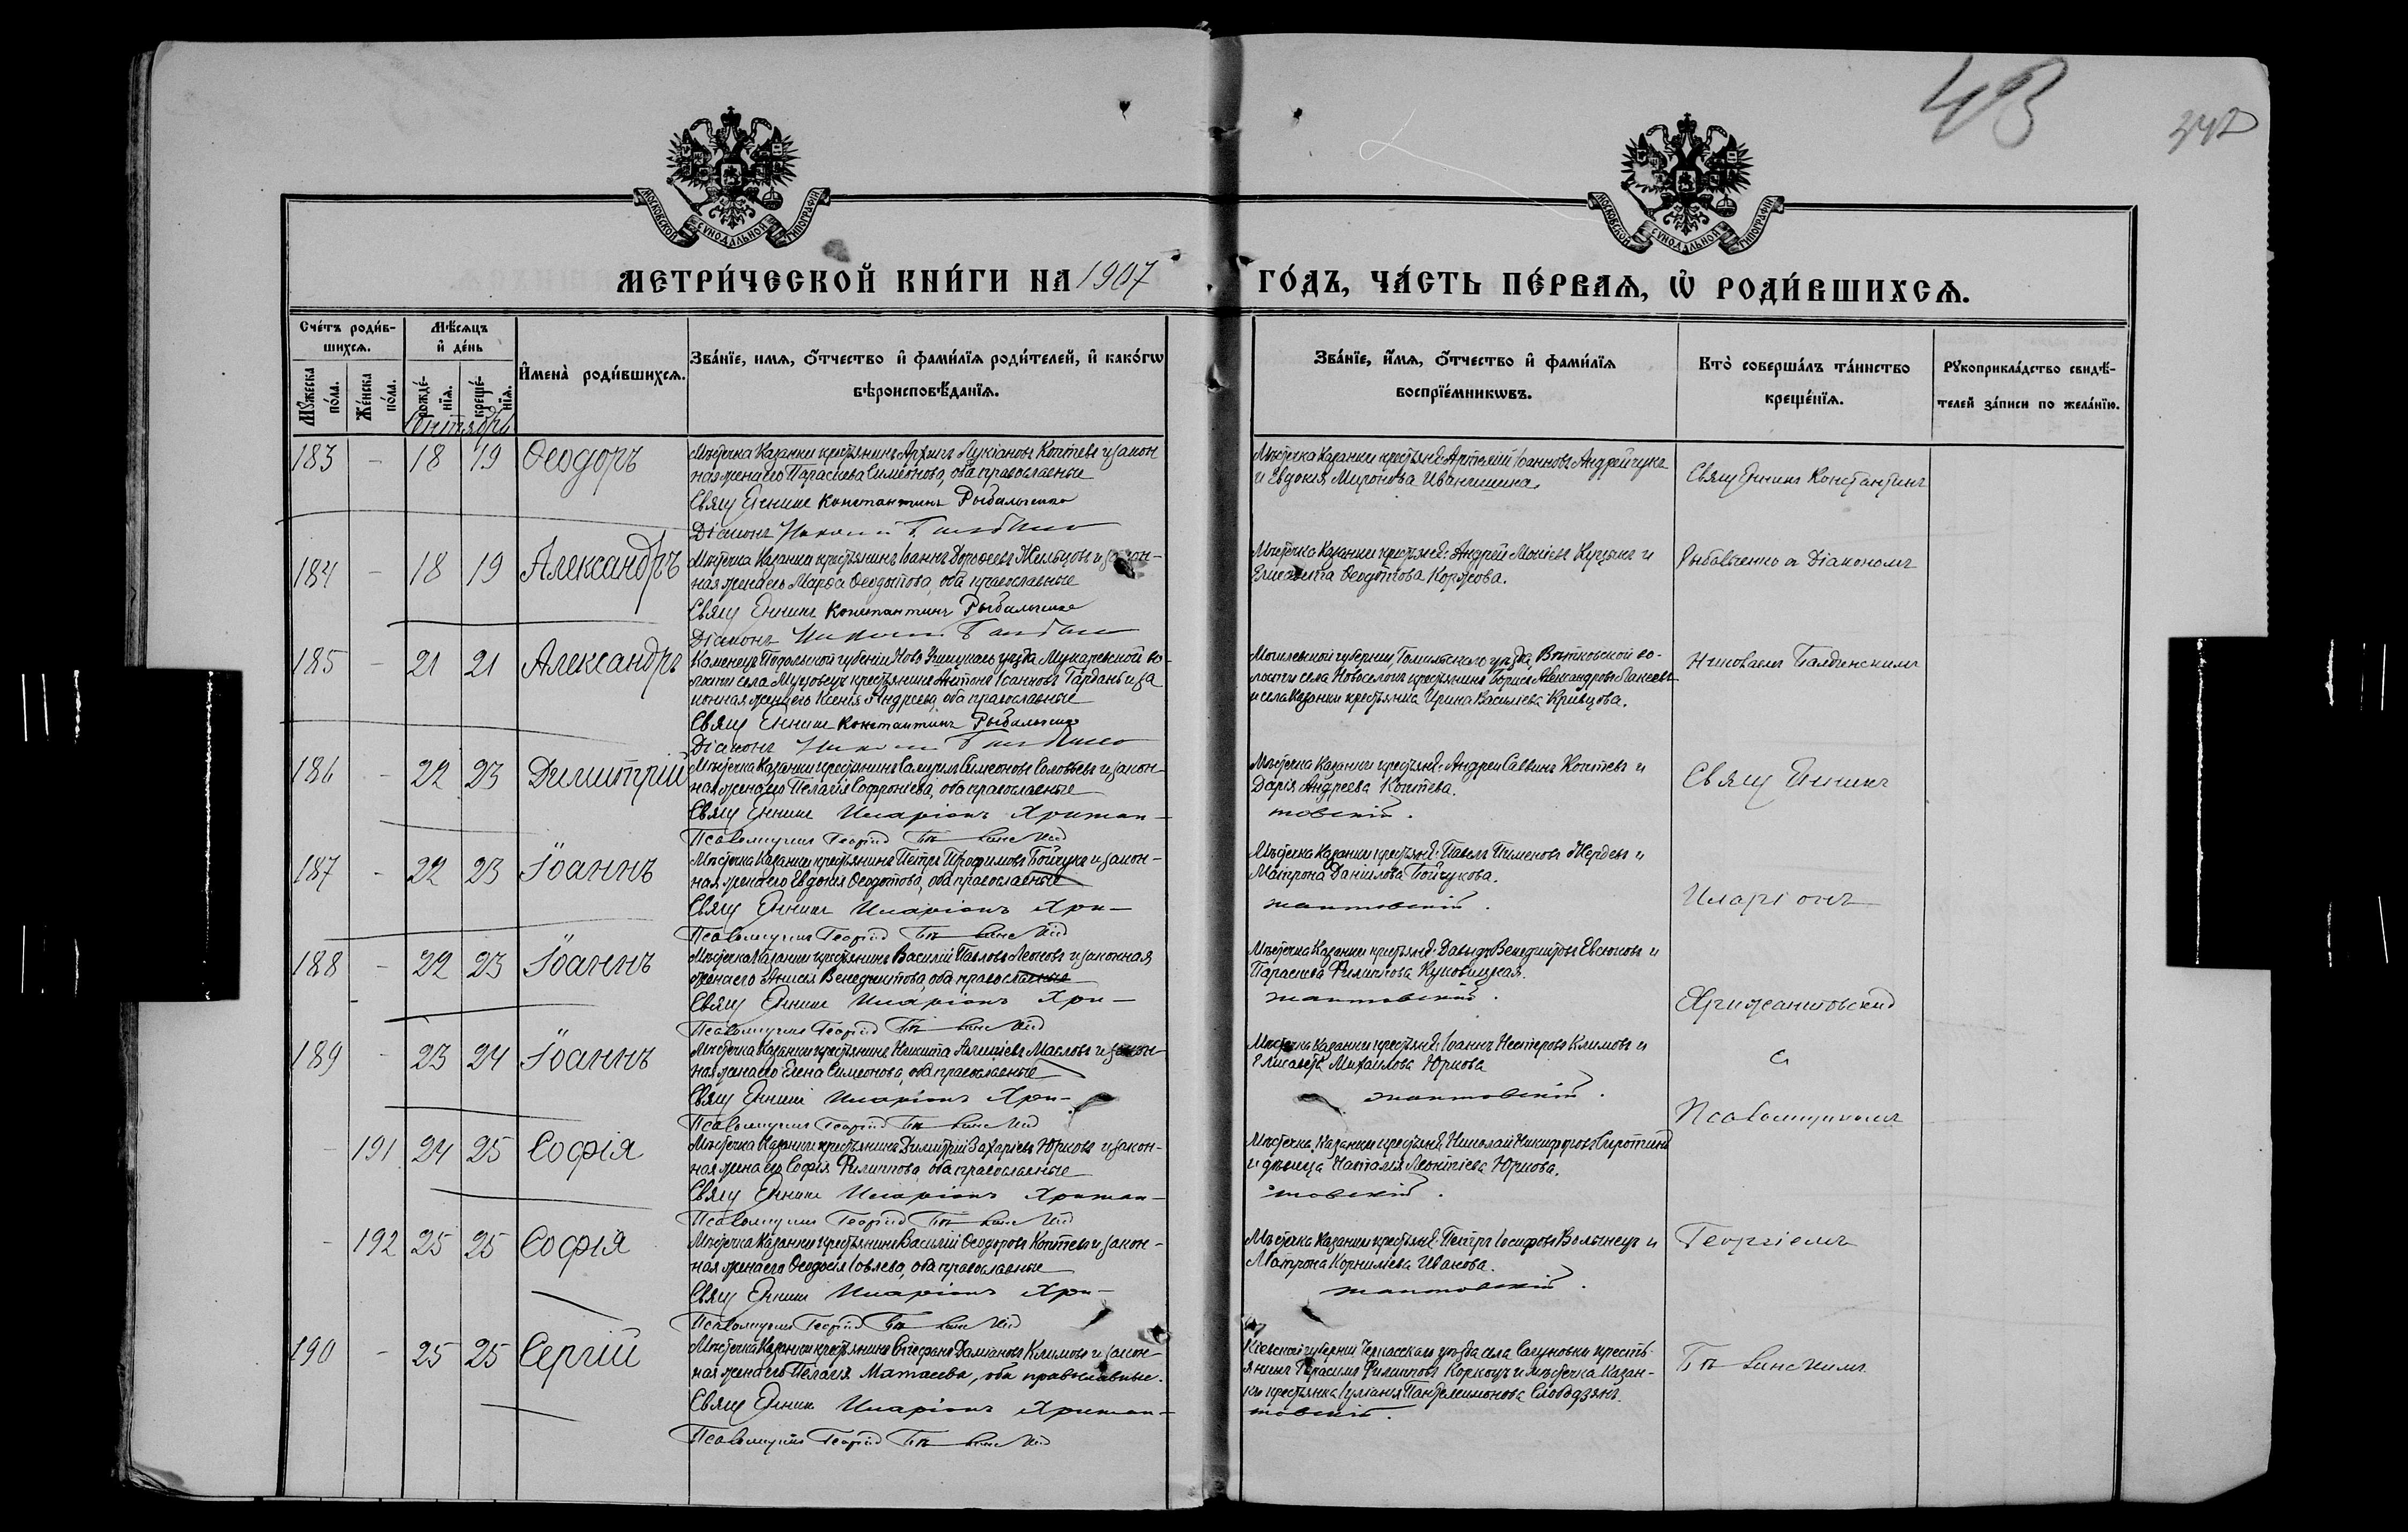 43
342
МОСКОВСКОЙ СУНОДАЛЬНОЙ ТИПОГРАФІИ
МОСКОВСКОЙ СУНОДАЛЬНОЙ ТИПОГРАФІИ
МЕТРИ́ЧЕСКОЙ КНИ́ГИ НА 1907 ГО́ДЪ, ЧА́СТЬ ПЕ́РВАѦ, Ѡ҆ РОДИ́ВШИХСѦ.
Сче́тъ роди́в-
шихсѧ.
Мѣ́сѧцъ
и҆ де́нь
И҆мена̀ роди́вшихсѧ.
Зва́нїе, имѧ, ѻ҆́тчество и҆ фами́лїѧ роди́телей, и҆ како́гѡ
вѣроисповѣ́данїѧ.
Зва́нїе, и҆́мѧ, ѻ҆́тчество и҆ фами́лїѧ
воспрїе́мникѡвъ.
Кто̀ соверша́лъ та́инство
креще́нїѧ.
Рꙋкоприкла́дство свидѣ́-
телей за́писи по жела́нїю.
Мꙋ́жеска
по́ла.
Же́нска
по́ла.
рожде́-
нїѧ.
креще́-
нїѧ.
Сентябрь
183 - 18 19 Ѳеодоръ
Мѣстечка Казанки крестьянинъ Архипъ Лукіановъ Коптевъ и закон
ная жена его Параскева Симеонова, оба православные
Священникъ Константинъ Рыбальченко
Діаконъ Николай
Мѣстечка Казанки крестьяне: Артемій Іоанновъ Андрейчукъ
и Евдокія Миронова Иванишина.
Священникъ Константинъ
184 - 18 19 Александръ
Мѣстечка Казанки крестьянинъ Іоаннъ Дороѳеевъ Жельцовъ и закон-
ная жена его Марѳа Ѳеодотова, оба православные
Священникъ Константинъ Рыбальченко
Діаконъ Николай
Мѣстечка Казанки крестьяне: Андрей Куцынъ и
Елисавета Ѳеодотова Коржова.
Рыбальченко съ Діакономъ
185 - 21 21 Александръ
Каменецъ Подольской губерніи Ново Ушицкаго уѣзда Мукаревской во-
лости села крестьянинъ Антонъ Іоанновъ Гарданъ и за
конная жена его Ксенія Андреева, оба православные
Священникъ Константинъ Рыбальченко
Діаконъ Николай
Могилевской губерніи, Гомельскаго уѣзда, Вѣтковской во-
лости села Новоселокъ крестьянинъ Борисъ Александровъ
и села Казанки крестьянка Ирина Василіева Кривцова.
Николаемъ
186 - 22 23 Димитрій
Мѣстечка Казанки крестьянинъ Самуилъ Симеоновъ Соловьевъ и закон-
ная жена его Пелагія Софроніева, оба православные
Священникъ Иларіонъ Хрижан-
Псаломщикъ Георгій
Мѣстечка Казанки крестьяне: Андрей Саввинъ Коптевъ и
Дарія Андреева Коптева.
товскій.
Священникъ
187 - 22 23 Іоаннъ
Мѣстечка Казанки крестьянинъ Петръ Трофимовъ Бойчукъ и закон-
ная жена его Евдокія Ѳеодотова, оба православные
Священникъ Иларіонъ Хри-
Псаломщикъ Георгій
Мѣстечка Казанки крестьяне: Павелъ Пименовъ Жердевъ и
Матрона Даніилова Бойчукова.
жантовскій.
Иларіонъ
188 - 22 23 Іоаннъ
Мѣстечка Казанки крестьянинъ Василій Павловъ Леоновъ и законная
жена его Анисія Венедиктова, оба православные
Священникъ Иларіонъ Хри-
Псаломщикъ Георгій
Мѣстечка Казанки крестьяне: Давидъ Венедиктовъ Евсюковъ и
Параскева Филиппова Куковицкая.
жантовскій.
Хрижантовскій
189 - 23 24 Іоаннъ
Мѣстечка Казанки крестьянинъ Никита Алексіевъ Масловъ и закон-
ная жена его Елена Симеонова, оба православные
Священникъ Иларіонъ Хри-
Псаломщикъ Георгій
Мѣстечка Казанки крестьяне: Іоаннъ Нестеровъ Климовъ и
Елисавета Михаилова Юркова
жантовскій.
съ
Псаломщикомъ
- 191 24 25 Софія
Мѣстечка Казанки крестьянинъ Димитрій Захаріевъ Юрковъ и закон-
ная жена его Софія Филиппова, оба православные
Священникъ Иларіонъ Хрижан-
Псаломщикъ Георгій
Мѣстечка Казанки крестьяне: Николай Никифоровъ Сиротинъ
и дѣвица Наталія Леонтіева Юркова.
товскій.
- 192 25 25 Софія
Мѣстечка Казанки крестьянинъ Василій Ѳеодоровъ Коптевъ и закон-
ная жена его Ѳеодосія Іовлева, оба православные
Священникъ Иларіонъ Хри-
Псаломщикъ Георгій
Мѣстечка Казанки крестьяне: Петръ Іосифовъ Волынецъ и
Матрона Корниліева Иванова.
жантовскій.
Георгіемъ
190 - 25 25 Сергій
Мѣстечка Казанки крестьянинъ Стефанъ Даміановъ Климовъ и закон-
ная жена его Пелагія Матѳеева, оба православные.
Священникъ Иларіонъ Хрижан-
Псаломщикъ Георгій
Кіевской губерніи Черкасскаго уѣзда села Сагуновки кресть-
янинъ Герасимъ Филипповъ Коркоцъ и мѣстечка Казан-
ки крестьянка Іуліанія Пантелеимонова Слободзянъ.
товскій.